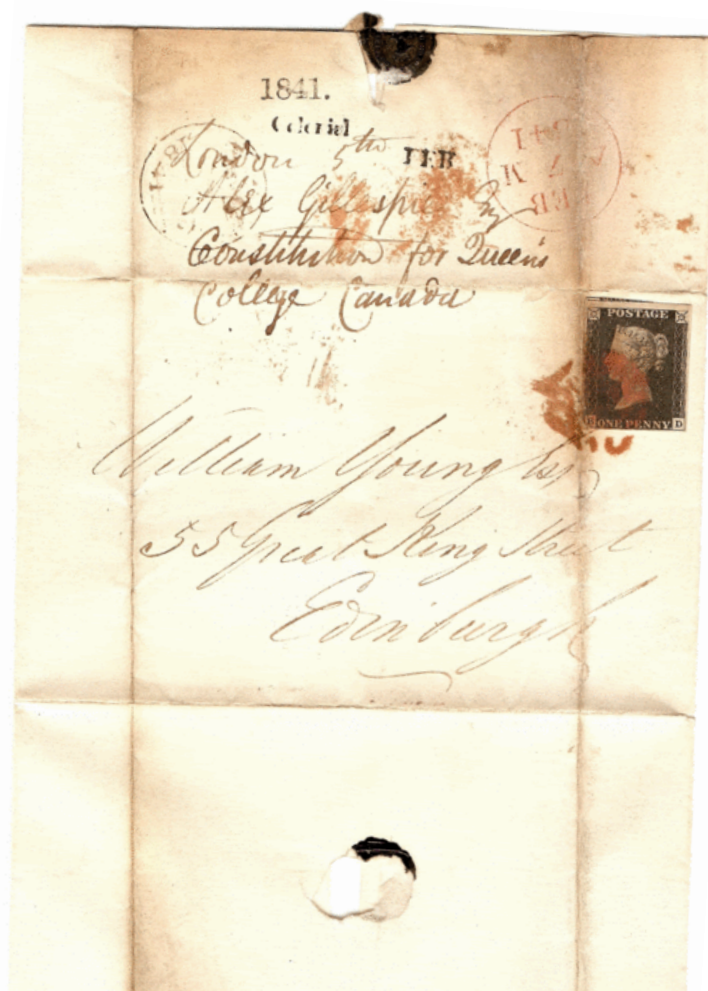 1841.
Colonial
London 5th
FEB
Alex Gillespie Esq
Constitution for Queen's
College Canada
POSTAGE
ONE PENNY D
William Young Esq
55 Great King Street
Edinburgh